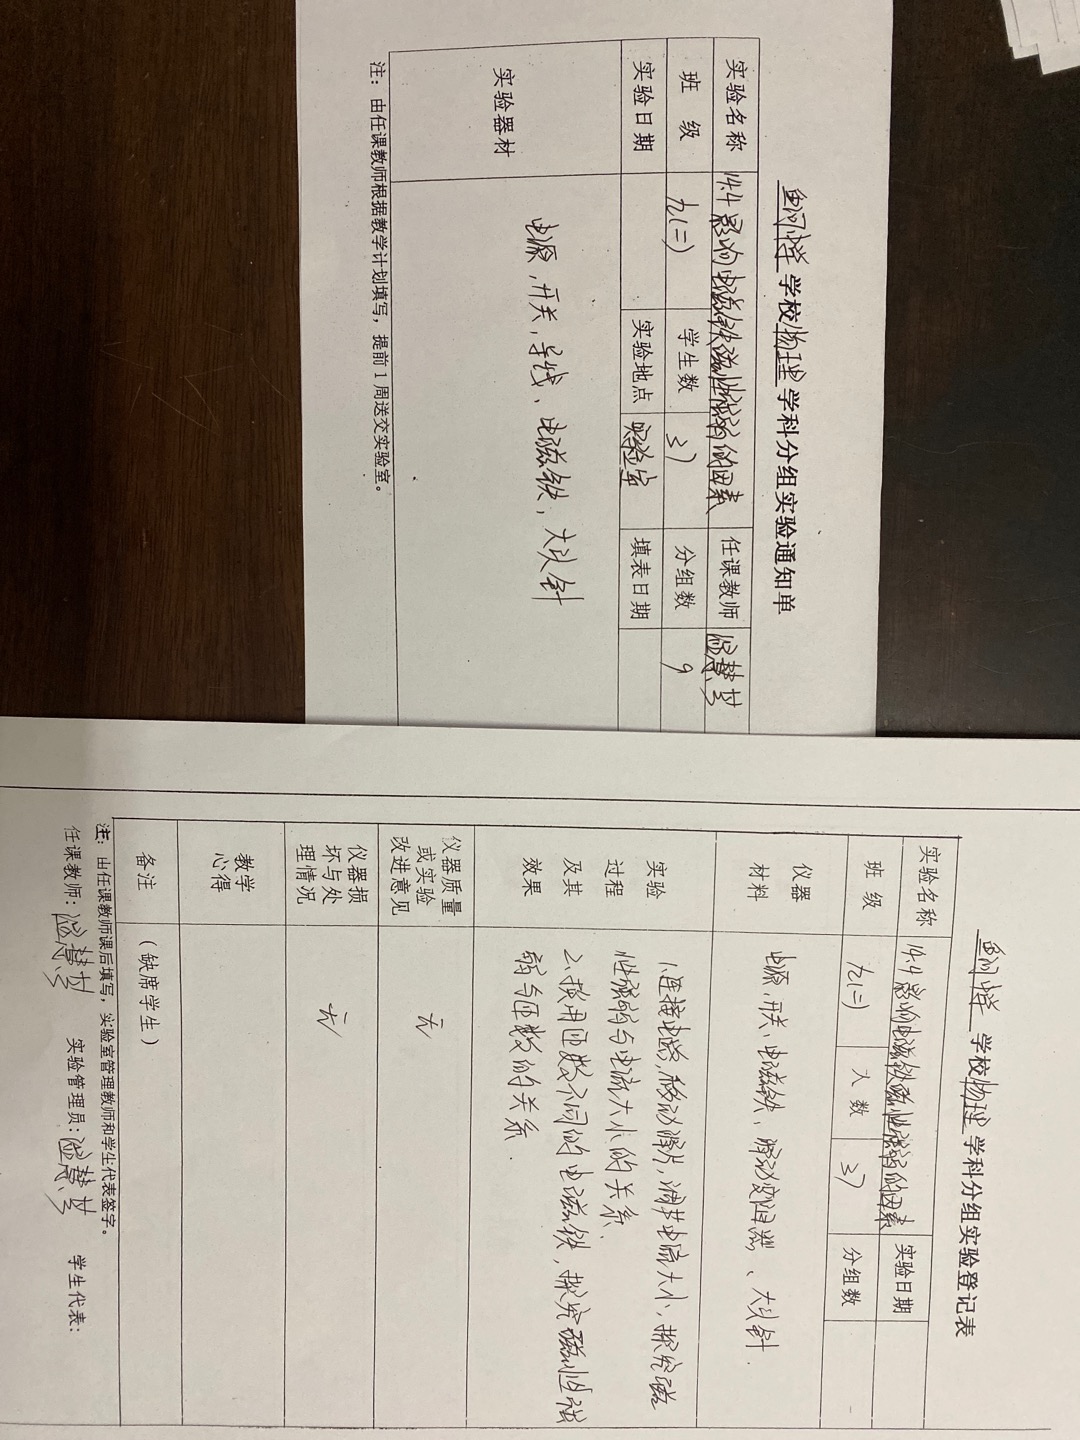 学校物理学科分组实验通知单
实验名称 14.4 影响电磁铁磁性强弱的因素 任课教师
班 级 九(二) 学生数 37 分组数 9
实验日期 实验地点 实验室 填表日期
实验器材 电源,开关,导线、电磁铁,大头针
注:由任课教师根据教学计划填写,提前1周送交实验室。
学校物理学科分组实验登记表
实验名称 14.4 影响电磁铁磁性强弱的因素 实验日期
班 级 九(二) 人数 37 分组数
仪器
材料
电源,开关,电磁铁、滑动变阻器、大头针.
实验
过程
及其
效果
1.连接电路,移动滑片,调节电流大小,探究磁
性强弱与电流大小的关系.
2.换用匝数不同的电磁铁,探究磁性强
弱与匝数的关系.
仪器质量
或实验
改进意见
无
仪器损
坏与处
理情况
无
教学
心得
备注 (缺席学生)
注:由任课教师课后填写,实验室管理教师和学生代表签字。
任课教师: 实验管理员: 学生代表: